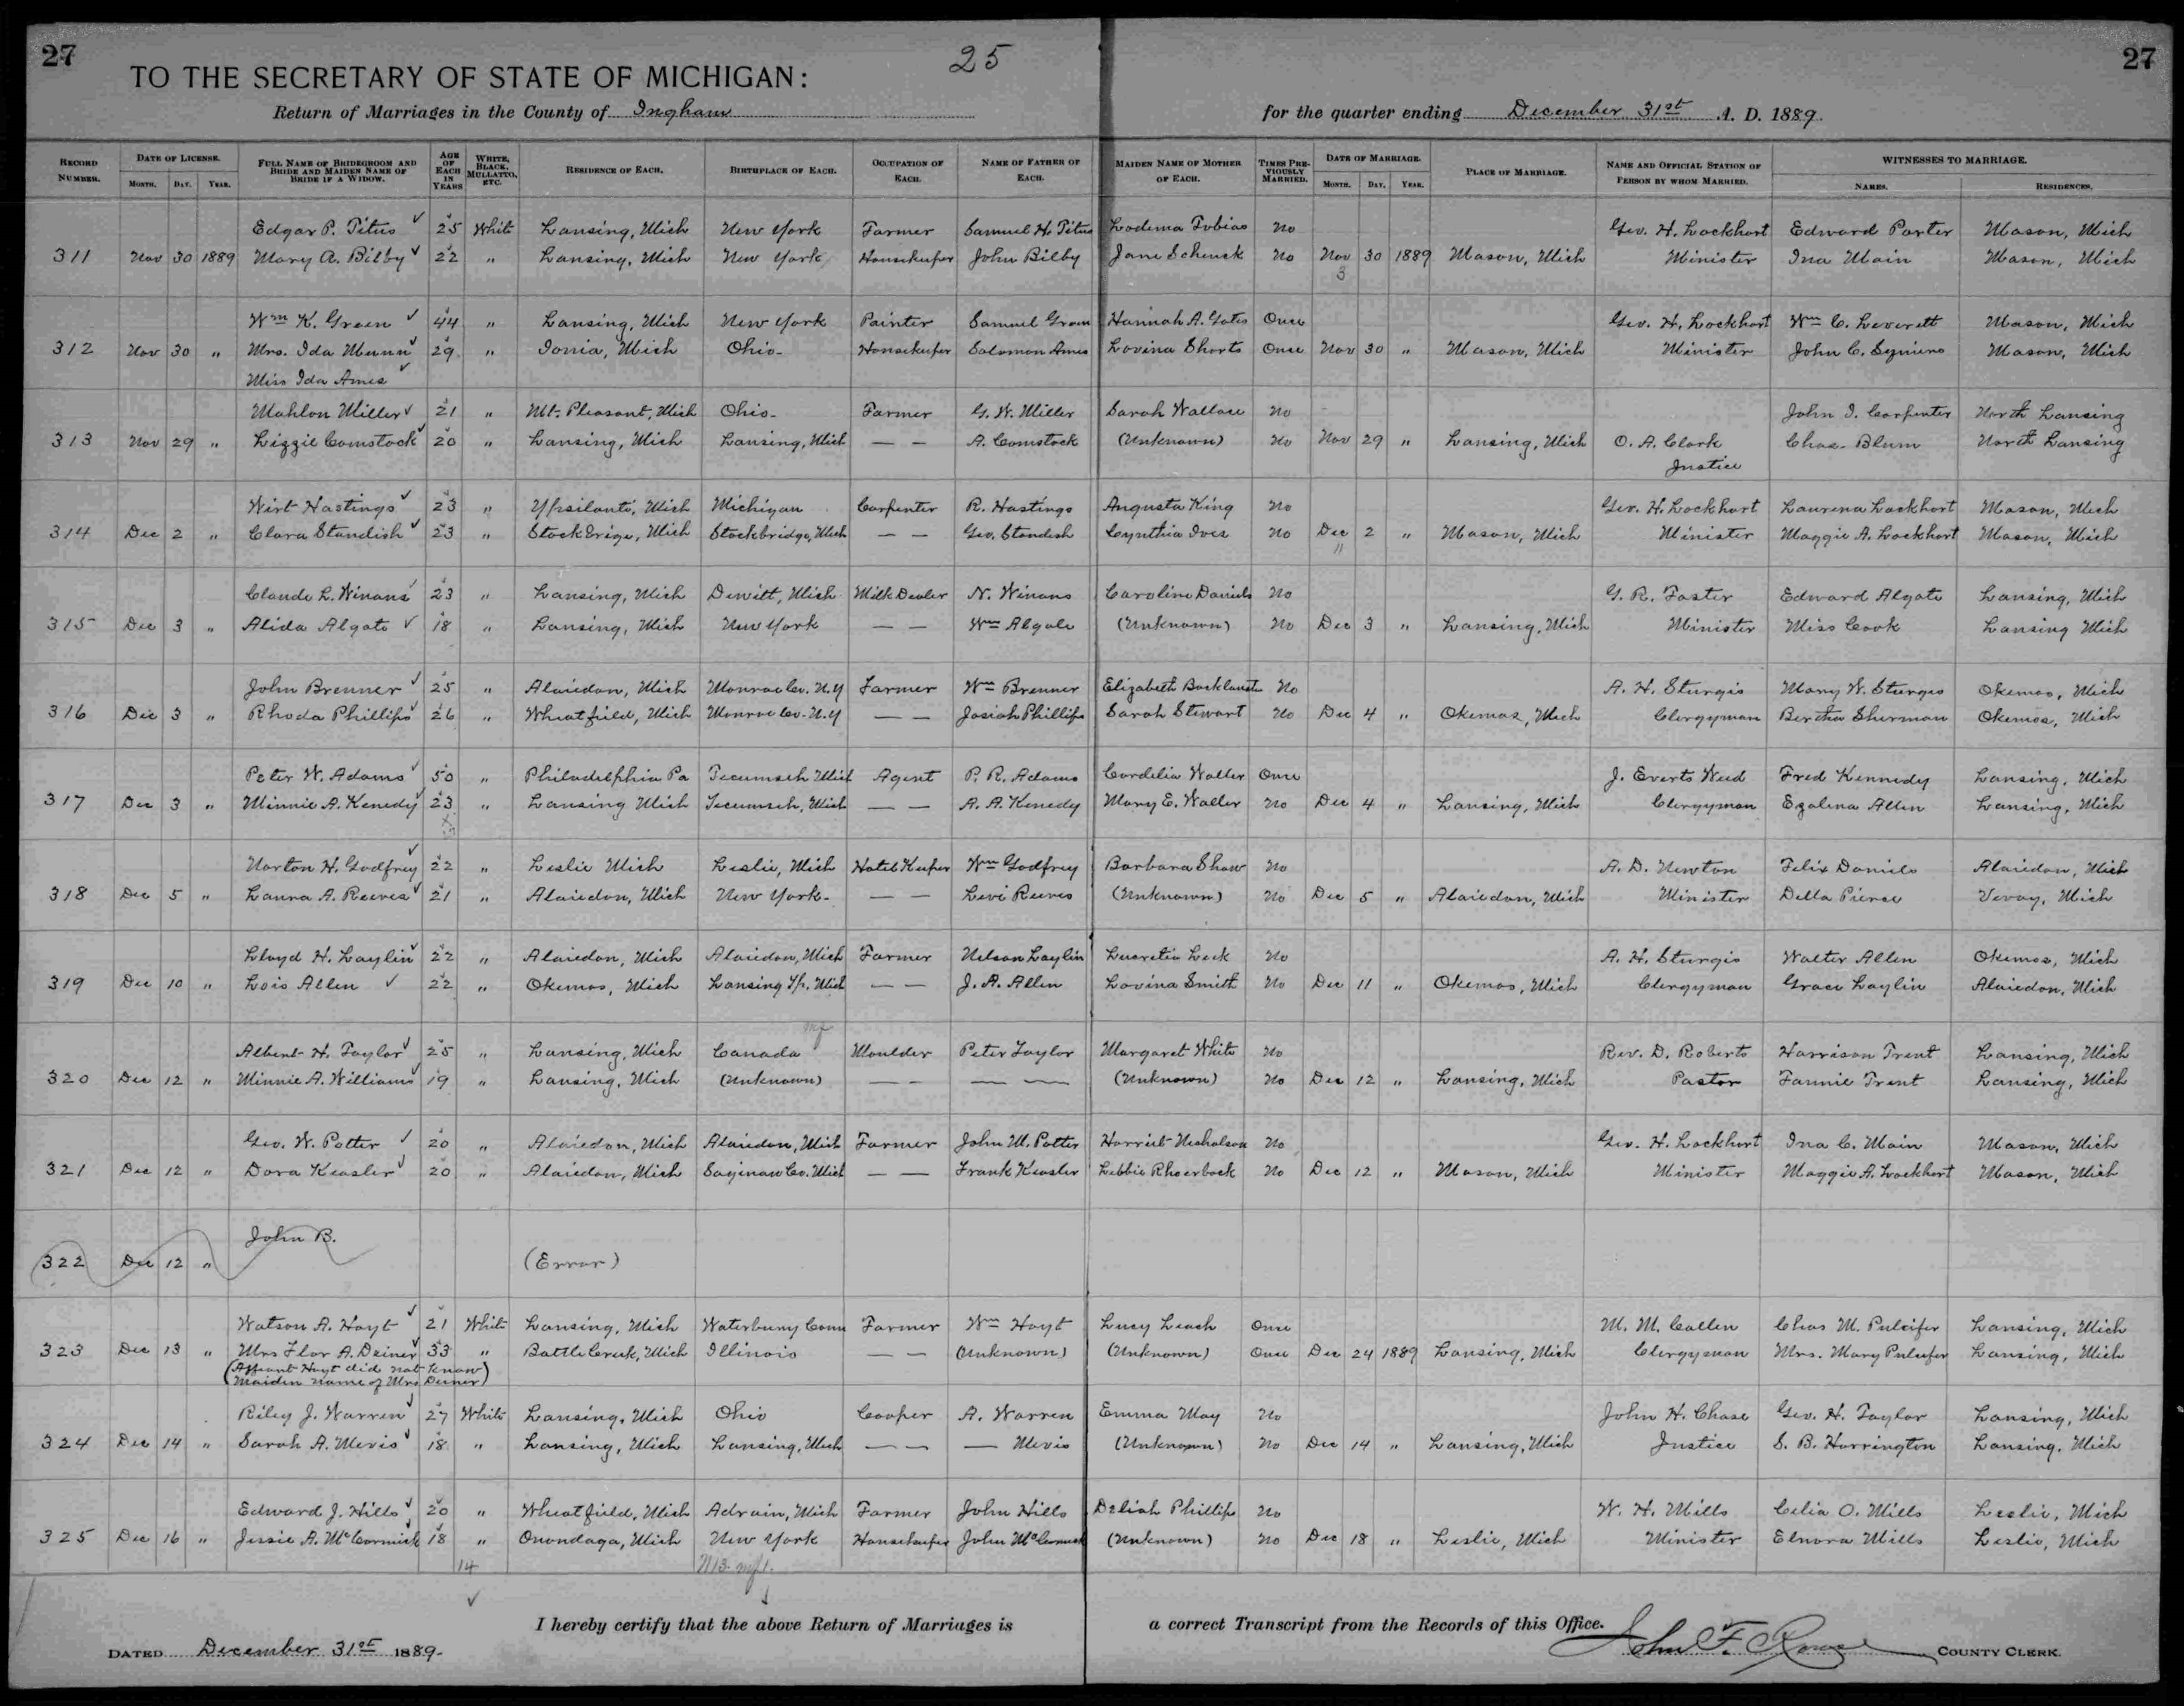 27 25 27
TO THE SECRETARY OF STATE OF MICHIGAN:
Return of Marriages in the County of Ingham for the quarter ending December 31st A. D. 1889.
RECORD NUMBER. DATE OF LICENSE. MONTH. DAY. YEAR. FULL NAME OF BRIDEGROOM AND BRIDE AND MAIDEN NAME OF BRIDE IF A WIDOW. AGE OF EACH IN YEARS WHITE, BLACK, MULLATTO, ETC. RESIDENCE OF EACH. BIRTHPLACE OF EACH. OCCUPATION OF EACH. NAME OF FATHER OF EACH. MAIDEN NAME OF MOTHER OF EACH. TIMES PREVIOUSLY MARRIED. DATE OF MARRIAGE. MONTH. DAY. YEAR. PLACE OF MARRIAGE. NAME AND OFFICIAL STATION OF PERSON BY WHOM MARRIED. WITNESSES TO MARRIAGE. NAMES. RESIDENCES.
Edgar P. Titus ✓ 25 White Lansing, Mich New York Farmer Samuel H. Titus Lodema Tobias No Geo. H. Lockhart Edward Porter Mason, Mich
311 Nov 30 1889 Mary A. Bilby ✓ 22 " Lansing, Mich New York Housekeeper John Bilby Jane Schenck No Nov 30 1889 Mason, Mich Minister Ina Main Mason, Mich
3
Wm K. Green ✓ 44 " Lansing, Mich New York Painter Samuel Green Hannah A. Gates Once Geo. H. Lockhart Wm C. Leverett Mason, Mich
312 Nov 30 " Mrs. Ida Munn ✓ 29 " Ionia, Mich Ohio- Housekeeper Solomon Ames Lovina Shorts Once Nov 30 " Mason, Mich Minister John C. Mason, Mich
Miss Ida Ames ✓
Mahlon Miller ✓ 21 " Mt. Pleasant, Mich Ohio- Farmer G. W. Miller Sarah Wallace No John I. Carpenter North Lansing
313 Nov 29 " Lizzie Comstock ✓ 20 " Lansing, Mich Lansing, Mich — — A. Comstock (Unknown) No Nov 29 " Lansing, Mich O. A. Clark Chas. Blum North Lansing
Justice
Wirt Hastings ✓ 23 " Ypsilanti, Mich Michigan Carpenter R. Hastings Augusta King No Geo. H. Lockhart Laurena Lockhart Mason, Mich
314 Dec 2 " Clara Standish ✓ 23 " Stockbrige, Mich Stockbridge, Mich — — Geo. Standish Cynthia Ives No Dec 2 " Mason, Mich Minister Maggie A. Lockhart Mason, Mich
11
Claude L. Winans ✓ 23 " Lansing, Mich Dewitt, Mich Milk Dealer N. Winans Caroline Daniels No G. R. Foster Edward Algate Lansing, Mich
315 Dec 3 " Alida Algate ✓ 18 " Lansing, Mich New York — — Wm Algate (Unknown) No Dec 3 " Lansing, Mich Minister Miss Cook Lansing Mich
John Brenner ✓ 25 " Alaiedon, Mich Monroe Co. N.Y Farmer Wm Brenner Elizabeth No A. H. Sturgis Mary W. Sturgis Okemos, Mich
316 Dec 3 " Rhoda Phillips ✓ 26 " Wheatfield, Mich Monroe Co. N.Y — — Josiah Phillips Sarah Stewart No Dec 4 " Okemos, Mich Clergyman Bertha Sherman Okemos, Mich
Peter W. Adams ✓ 50 " Philadelphia Pa Tecumseh Mich Agent P. R. Adams Cordelia Walter Once J. Everts Weed Fred Kennedy Lansing, Mich
317 Dec 3 " Minnie A. Kenedy ✓ 23 " Lansing Mich Tecumseh, Mich — — A. A. Kenedy Mary E. Waller No Dec 4 " Lansing, Mich Clergyman Ezalena Allen Lansing, Mich
Norton H. Godfrey ✓ 22 " Leslie Mich Leslie, Mich Hotel Keeper Wm Godfrey Barbara Shaw No A. D. Newton Felix Daniels Alaiedon, Mich
318 Dec 5 " Laura A. Reeves ✓ 21 " Alaiedon, Mich New York- — — Levi Reeves (Unknown) No Dec 5 " Alaiedon, Mich Minister Della Pierce Vevay, Mich
Lloyd H. Laylin ✓ 22 " Alaiedon, Mich Alaiedon, Mich Farmer Nelson Laylin Lucretia Leek No A. H. Sturgis Walter Allen Okemos, Mich
319 Dec 10 " Lois Allen ✓ 22 " Okemos, Mich Lansing Tp. Mich — — J. A. Allen Lovina Smith No Dec 11 " Okemos, Mich Clergyman Grace Laylin Alaiedon, Mich
mf
Albert H. Taylor ✓ 25 " Lansing, Mich Canada Moulder Peter Taylor Margaret White No Rev. D. Roberts Harrison Trent Lansing, Mich
320 Dec 12 " Minnie A. Williams ✓ 19 " Lansing, Mich (Unknown) — — — — (Unknown) No Dec 12 " Lansing, Mich Pastor Fannie Trent Lansing, Mich
Geo. W. Potter ✓ 20 " Alaiedon, Mich Alaiedon, Mich Farmer John M. Potter Harriet Nicholson No Geo. H. Lockhart Ina C. Main Mason, Mich
321 Dec 12 " Dora Keasler ✓ 20 " Alaiedon, Mich Saginaw Co. Mich — — Frank Keasler Libbie Rhoerback No Dec 12 " Mason, Mich Minister Maggie A. Lockhart Mason, Mich
John B.
322 Dec 12 " (Error)
Watson A. Hoyt ✓ 21 White Lansing, Mich Waterbury Conn Farmer Wm Hoyt Lucy Leach Once M. M. Callen Chas M. Pulcifer Lansing, Mich
323 Dec 13 " Mrs Flor A. Deiner ✓ 33 " Battle Creek, Mich Illinois — — (Unknown) (Unknown) Once Dec 24 1889 Lansing, Mich Clergyman Mrs. Mary Pulcifer Lansing, Mich
(Affiant Hoyt did not know
maiden name of Mrs Deiner)
Riley J. Warren ✓ 27 White Lansing, Mich Ohio Cooper A. Warren Emma May No John H. Chase Geo. H. Taylor Lansing, Mich
324 Dec 14 " Sarah A. Mevis ✓ 18 " Lansing, Mich Lansing, Mich — — — Mevis (Unknown) No Dec 14 " Lansing, Mich Justice S. B. Harrington Lansing, Mich
Edward J. Hills ✓ 20 " Wheatfield, Mich Adrain, Mich Farmer John Hills Deliah Phillips No W. H. Mills Celia O. Mills Leslie, Mich
325 Dec 16 " Jessie A. McCormick ✓ 18 " Onondaga, Mich New York Housekeeper John McCormick (Unknown) No Dec 18 " Leslie, Mich Minister Elnora Mills Leslie, Mich
14
I hereby certify that the above Return of Marriages is a correct Transcript from the Records of this Office.
DATED December 31st 1889. John F. Rouse COUNTY CLERK.